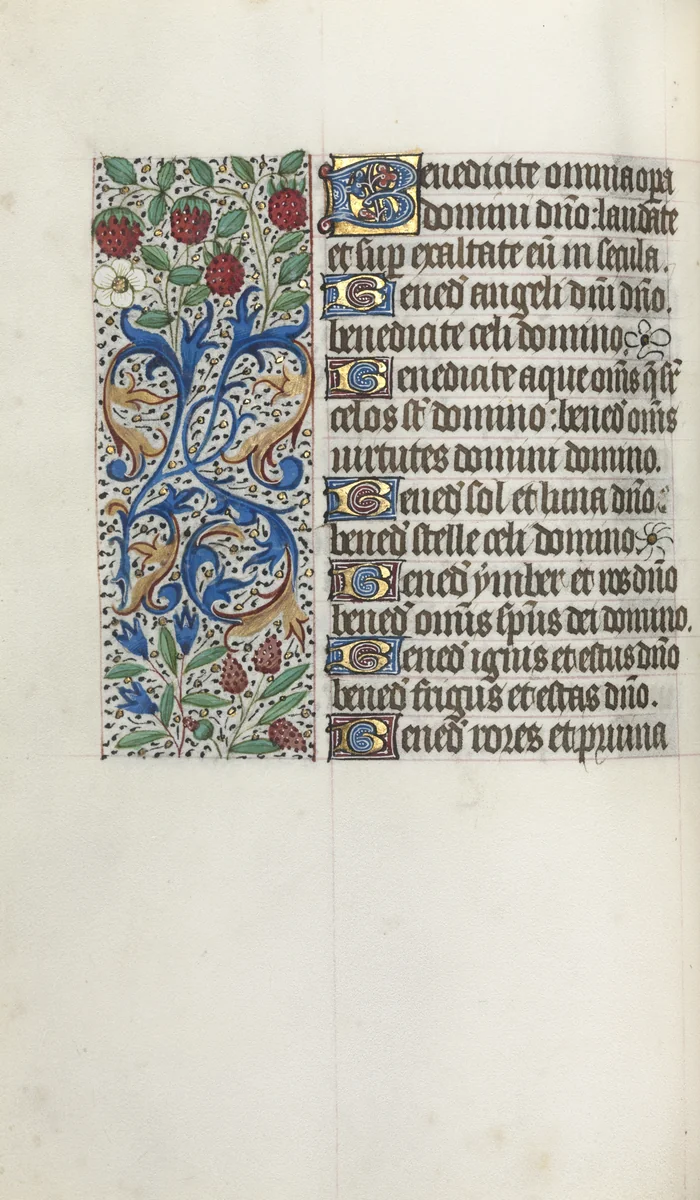 Benedicite omnia opa
domini dño: laudate
et sup exaltate eũ in secula.
Bened angeli dñi dño.
benedicite celi domino
Benedicite aque oms q sr̃
celos sť domino: bened oms
uirtutes domini domino.
Bened sol et luna dño.
bened stelle celi domino
Bened ymber et ros dño
bened omnis spũs dei domino.
Bened ignis et estus dño
bened frigus et estas dño.
Bened rores et pruina